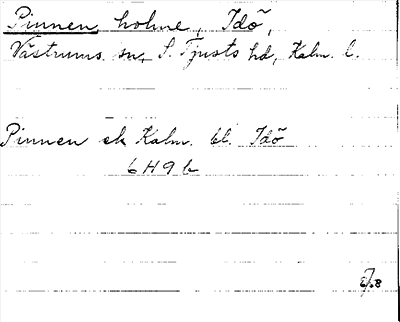 Pinnen, holme, Idö,
Västrums sn, S. Tjusts hd, Kalm. l.
Pinnen ek Kalm. bl. Idö
6H9b